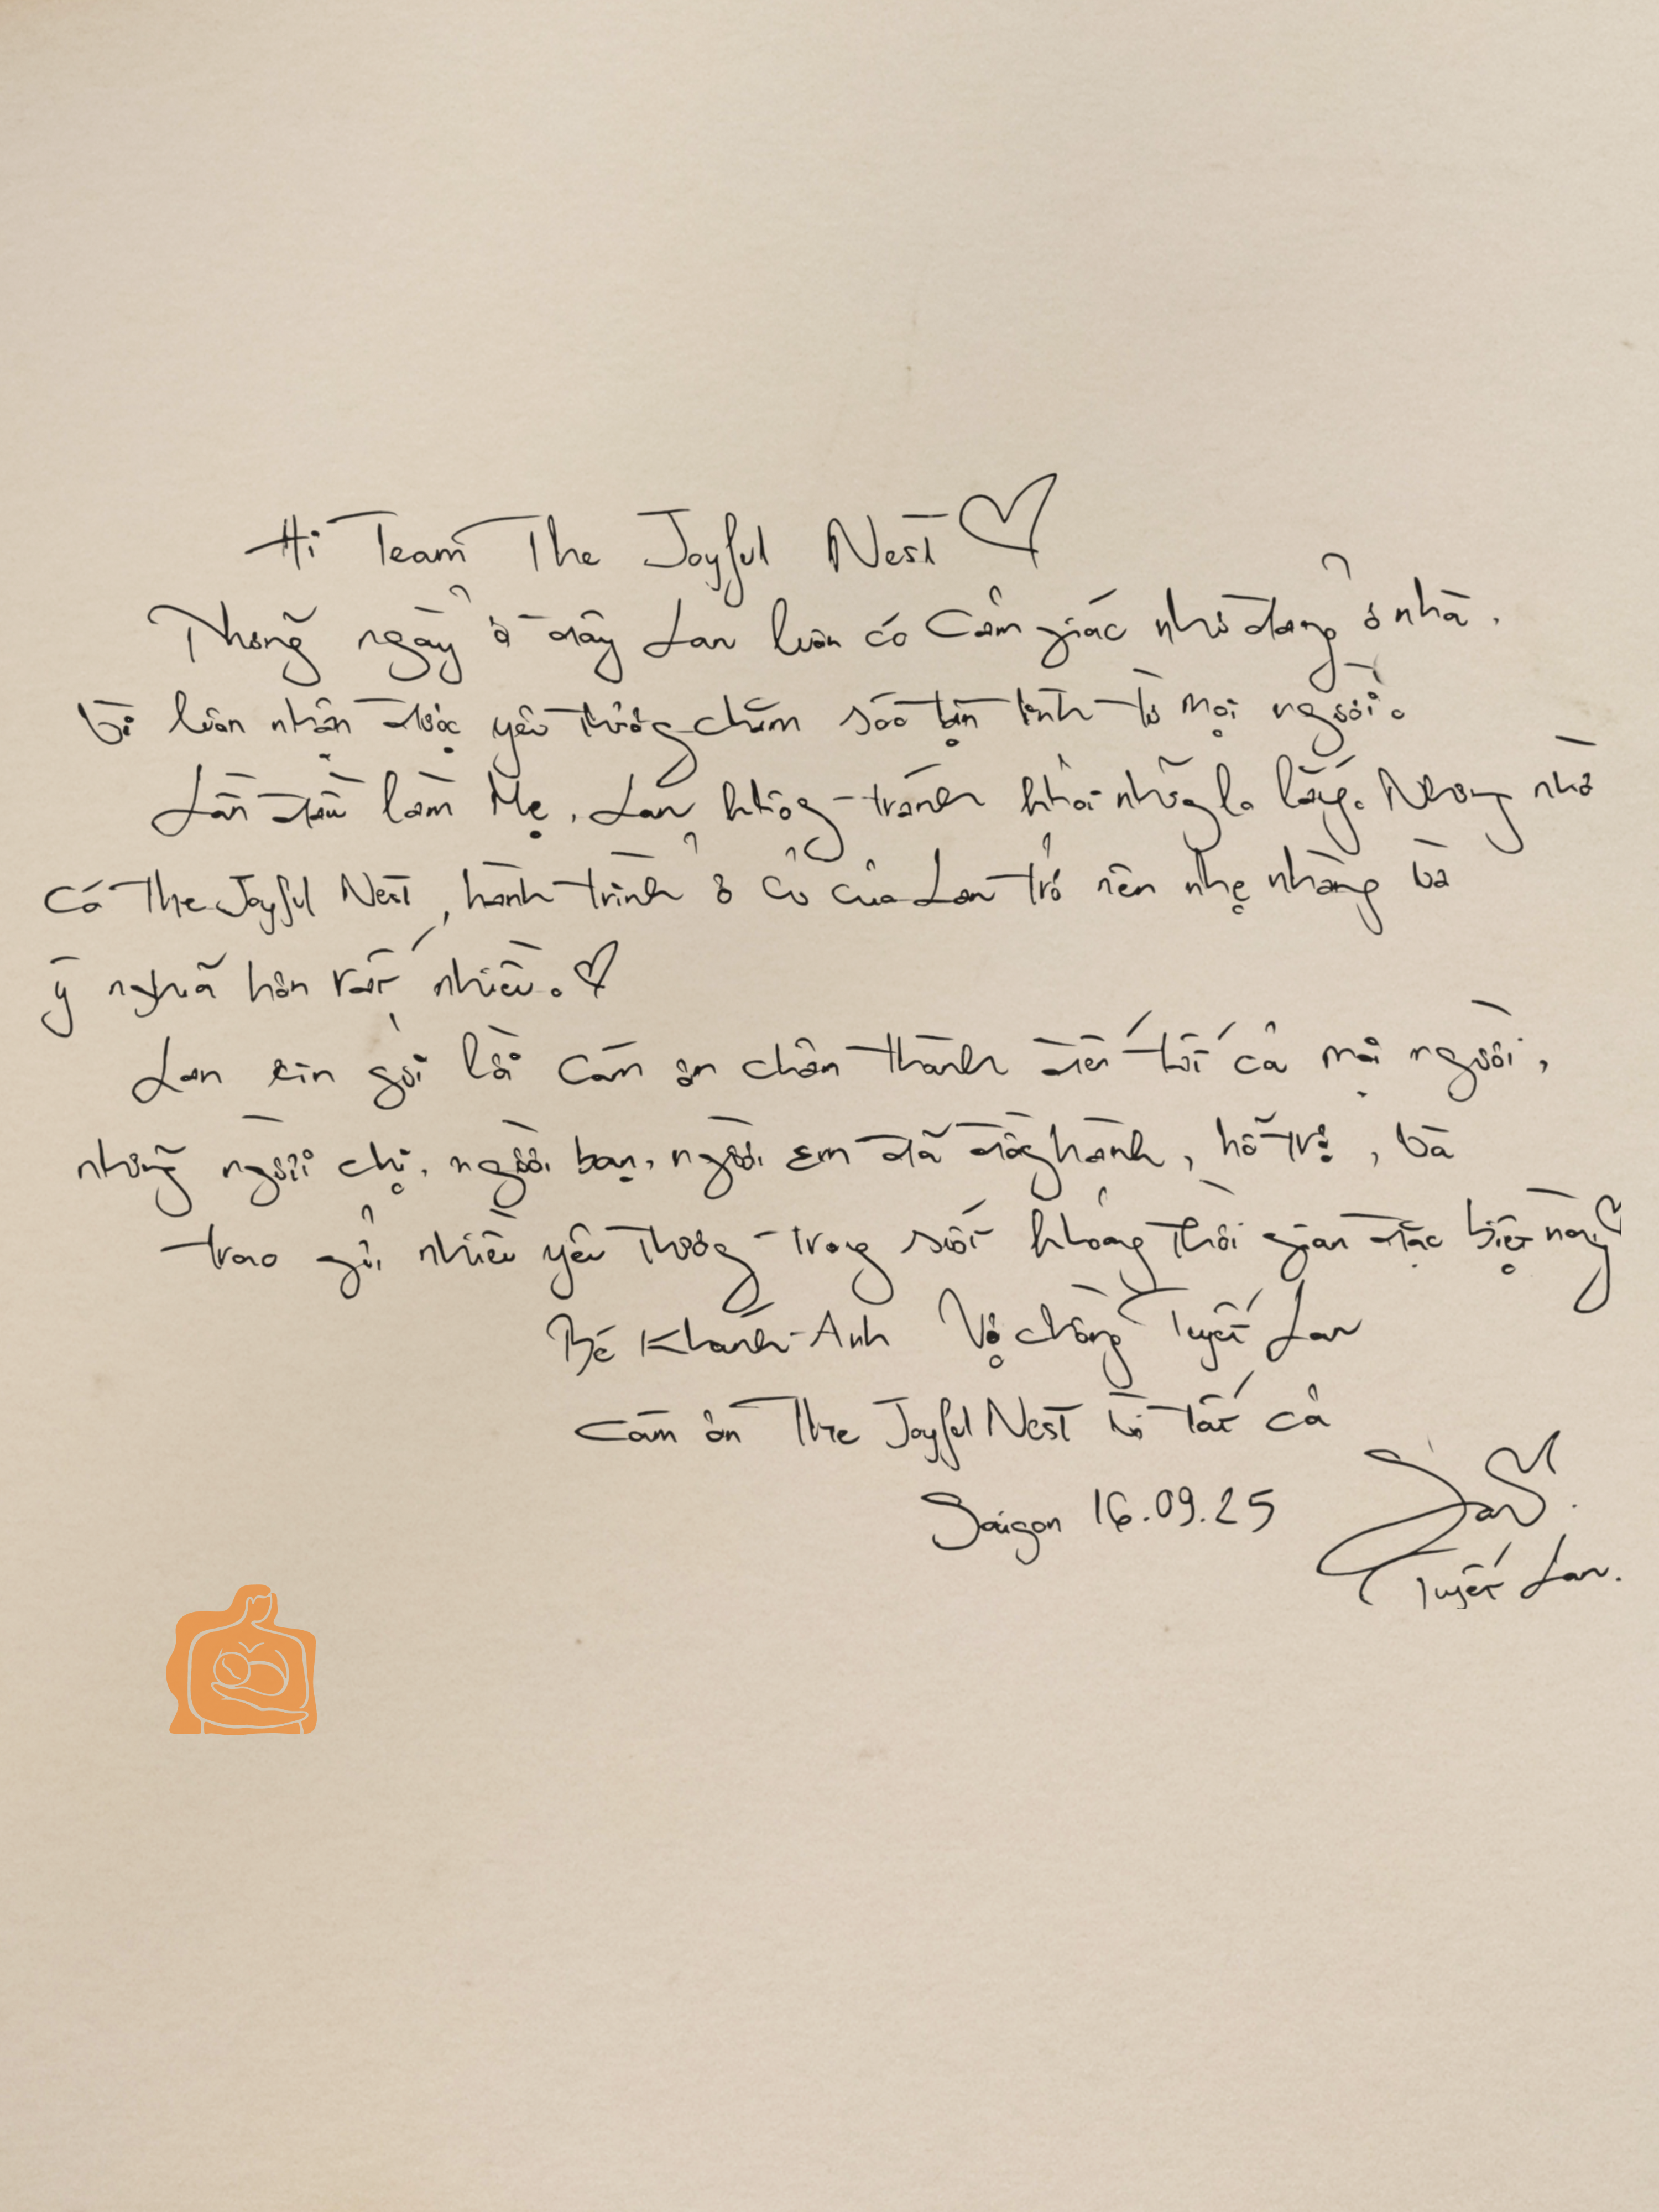 Hi Team The Joyful Nest
Những ngày ở đây Lan luôn có cảm giác như đang ở nhà.
Vì luôn nhận được yêu thương chăm sóc tận tình từ mọi người.
Lần đầu làm Mẹ, Lan không tránh khỏi những lo lắng. Nhưng nhờ
có The Joyful Nest, hành trình ở cữ của Lan trở nên nhẹ nhàng và
ý nghĩa hơn rất nhiều.
Lan xin gửi lời cám ơn chân thành đến tất cả mọi người,
những người chị, người bạn, người em đã đồng hành, hỗ trợ, và
trao gửi nhiều yêu thương trong suốt khoảng thời gian đặc biệt này
Bé Khánh-Anh Vợ chồng Tuyết Lan
cám ơn The Joyful Nest vì tất cả
Saigon 16.09.25
Tuyết Lan.